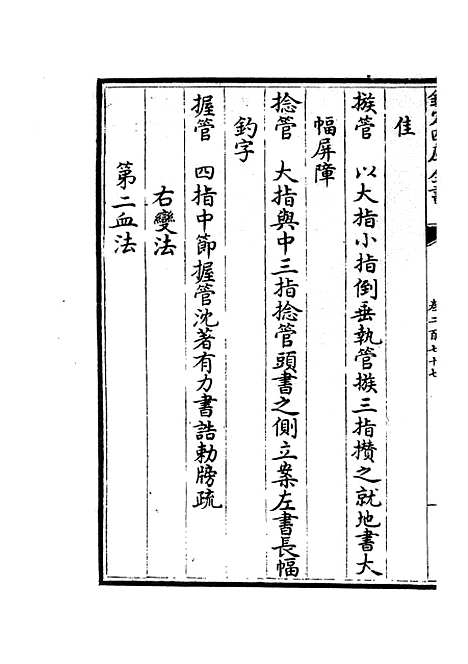 欽定四庫全書
卷二百七十七
佳
搋管 以大指小指倒垂執管搋三指攢之就地書大
幅屏障
捻管 大指與中三指捻管頭書之側立案左書長幅
釣字
握管 四指中節握管沈著有力書誥勅牓疏
右變法
第二血法